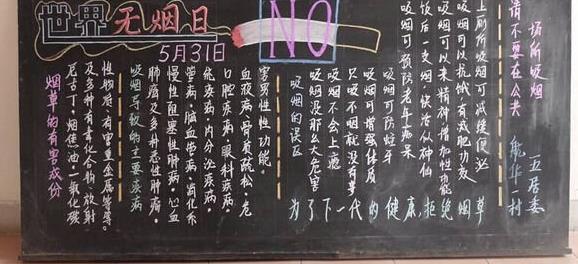 世界无烟日
5月31日
NO
烟草的有害成份
尼古丁,烟焦油,一氧化碳
及多种有毒化合物,放射
性物质,有害重金属等等。
吸烟导致的主要疾病
肺癌及多种恶性肿瘤,
慢性阻塞性肺病,心血
管病,脑血管病,消化系
统疾病,内分泌疾病,
口腔疾病,眼科疾病,
血液病,骨质疏松,危
害男性性功能。
吸烟的误区
吸烟没那么大危害
吸烟不会上瘾
只吸不咽就没有事
吸烟可增强体质
吸烟可防蛀牙
吸烟可预防老年痴呆
饭后一支烟,快活似神仙
吸烟可以来精神增加性功能
吸烟可以抗饿,有减肥功效
上厕所吸烟可减轻便泌
为了下一代的健康,拒绝烟草
请不要在公共
场所吸烟
航华一村
五居委